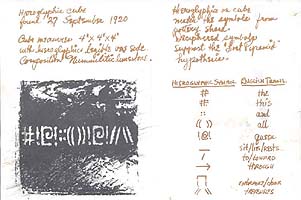 Hieroglyphic cube
found 29 September 1920
Cube measures 4" x 4" x 4"
with hieroglyphic legible one side
Composition: Nummulitic limestone.
Hieroglyphics on cube
match the symbols from
pottery shard.
Deciphered symbols
support the "First Pyramid"
hypothesis.
Hieroglyphic Symbol English Trans.
# the
# this
:: and
(( )) all
!@!
— sit/lie/rests
/ to/toward
→ through